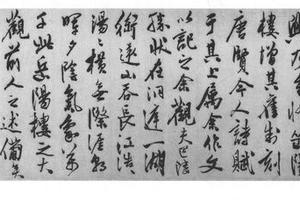 修岳陽
樓增其舊制刻
唐賢今人詩賦
于其上屬余作文
以記之余觀夫巴陵
勝狀在洞庭一湖
銜遠山吞長江浩〻
湯〻橫無際涯朝
暉夕陰氣象萬
千此岳陽樓之大
觀前人之述備矣